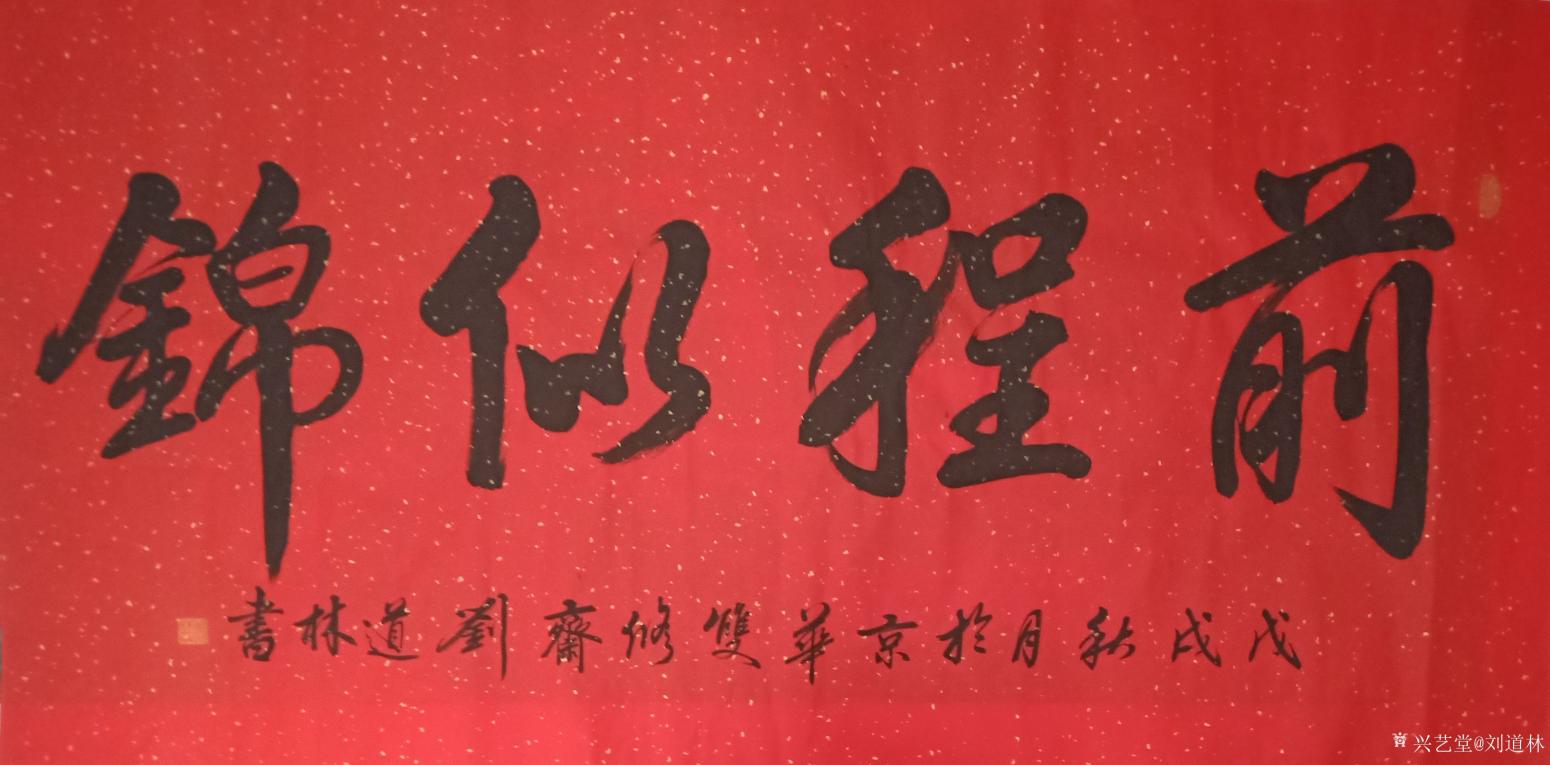 前程似錦
戊戌秋月於京華雙修齋劉道林書
兴艺堂@刘道林